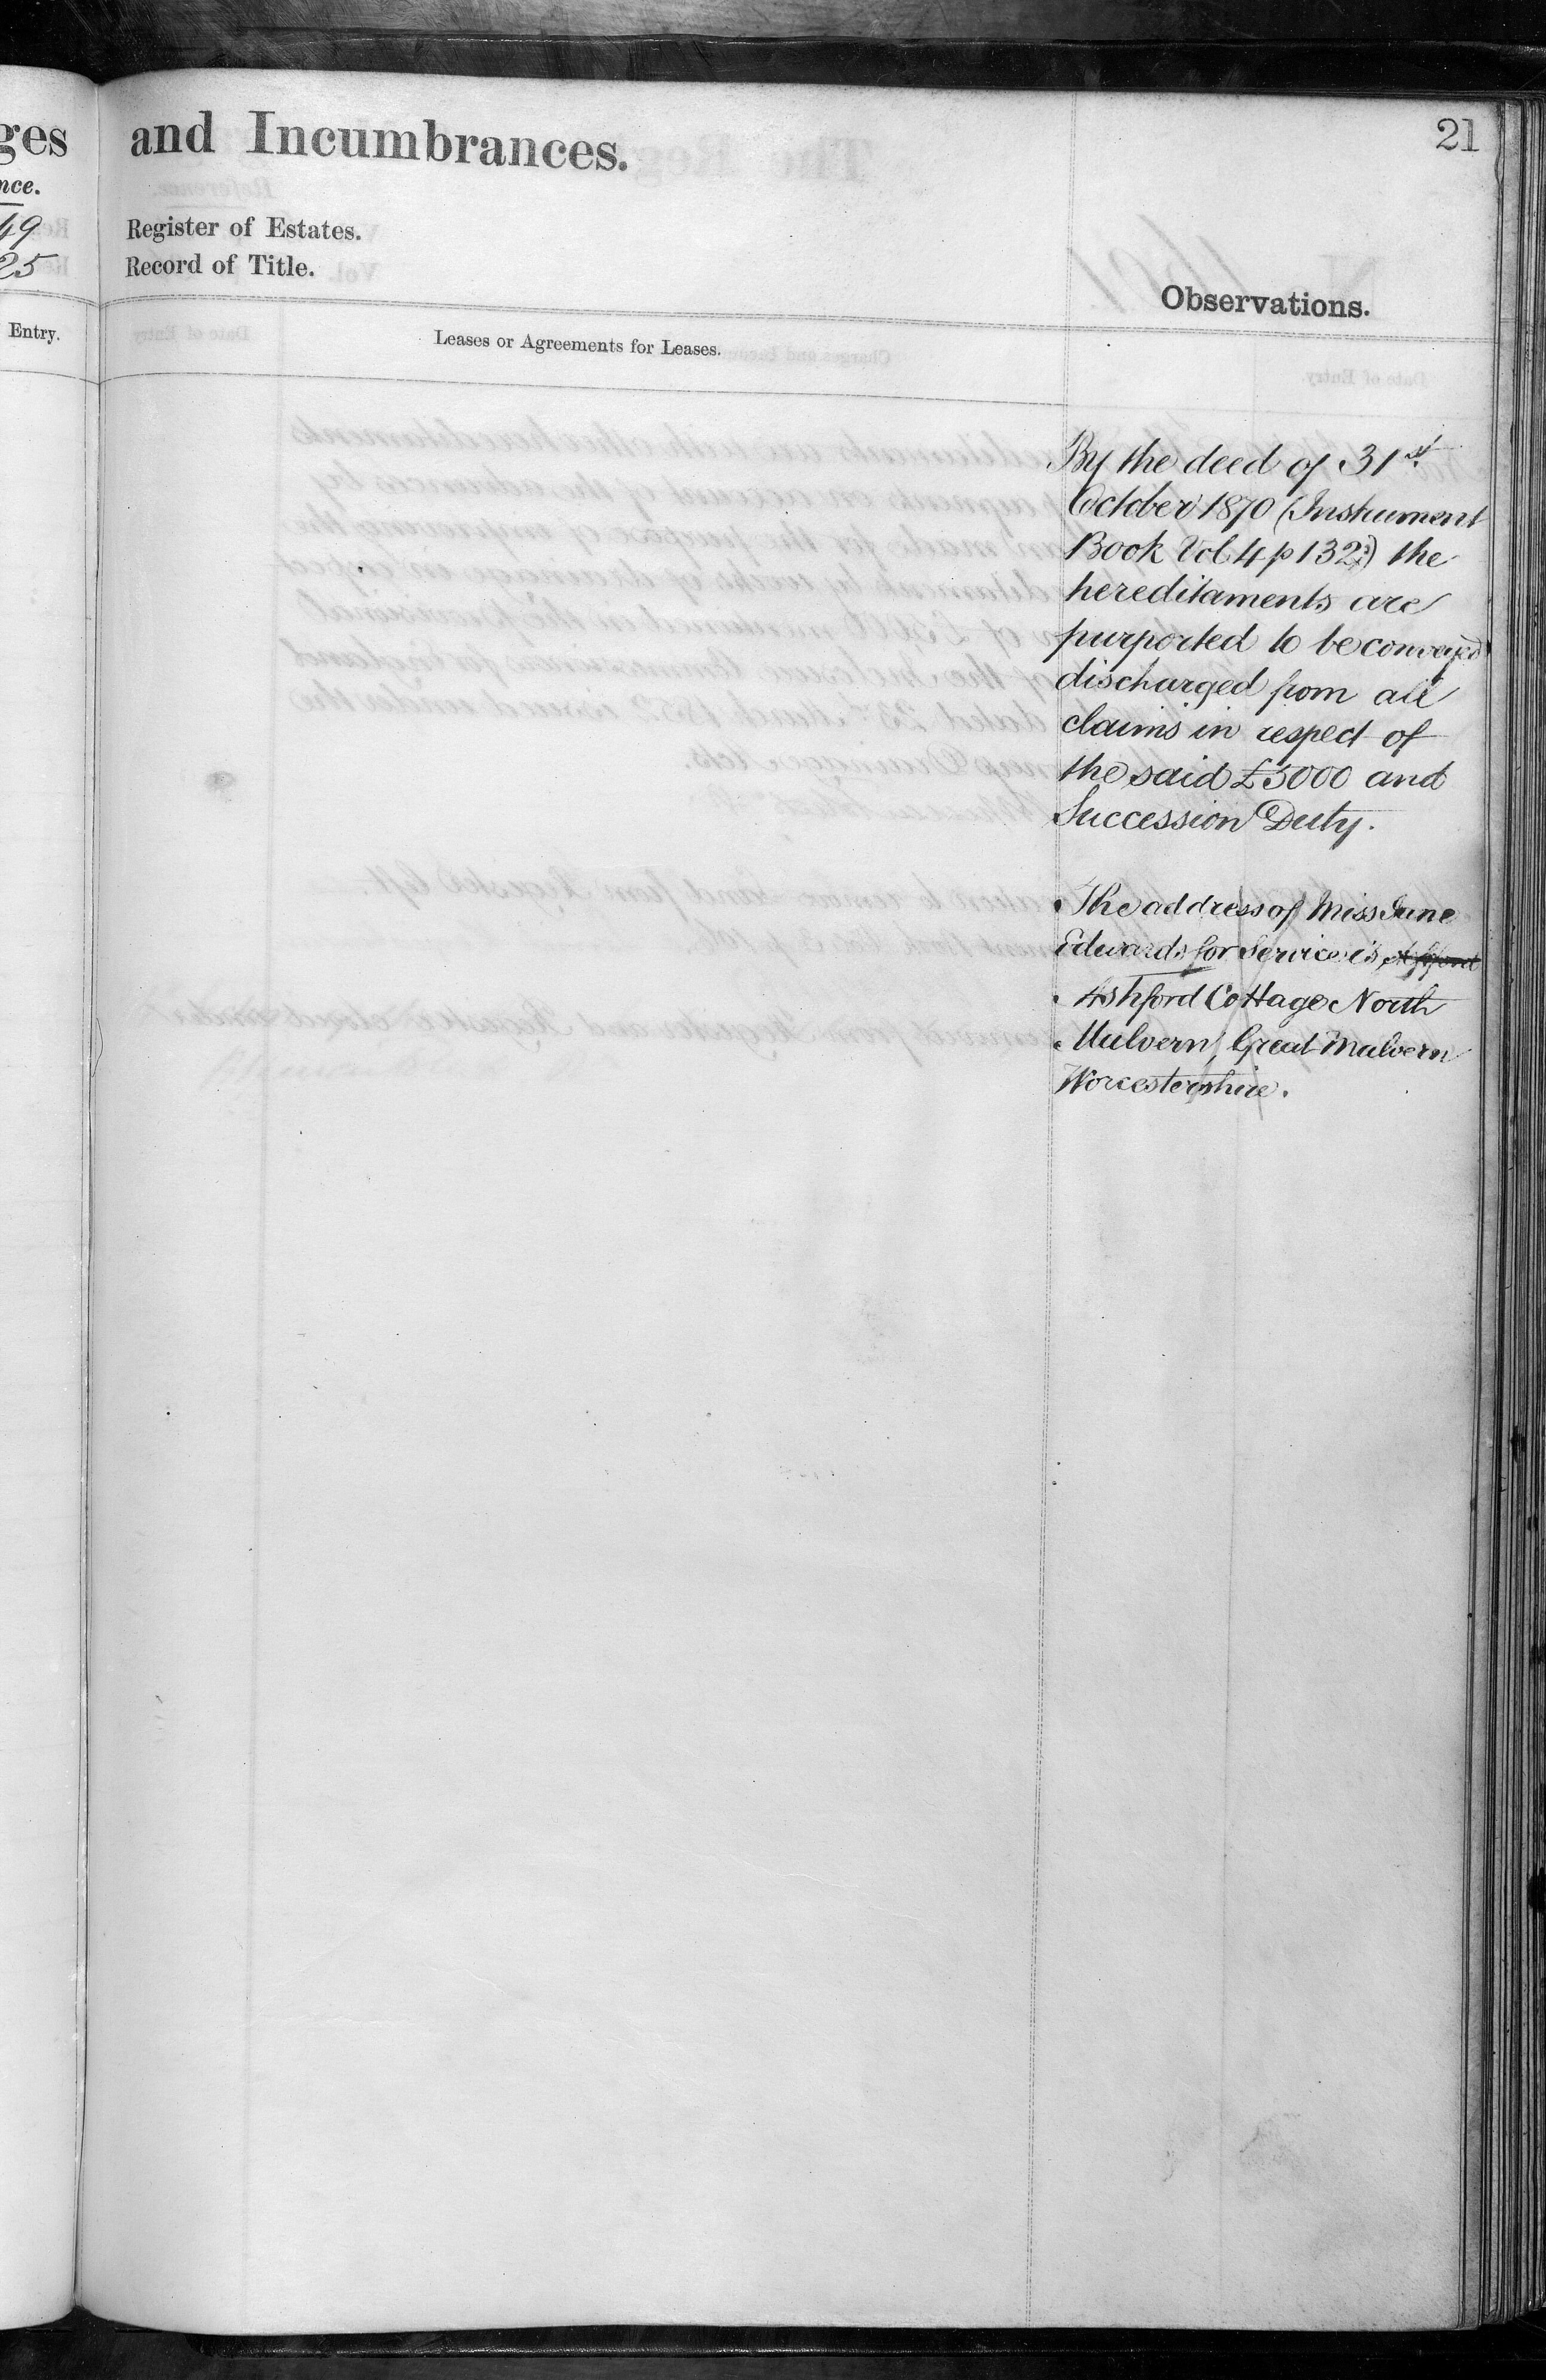 ges
nce.
49
25
Entry.
and Incumbrances.
21
Register of Estates.
Record of Title.
Observations.
Leases or Agreements for Leases.
By the deed of 31st
October 1870 (Instrument
Book Vol 4 p 132) the
hereditaments are
purported to be conveyed
discharged from all
claims in respect of
the said £5000 and
Succession Duty.
The address of Miss Jane
Edwards for Service is
Ashford Cottage North
Malvern, Great Malvern
Worcestershire.